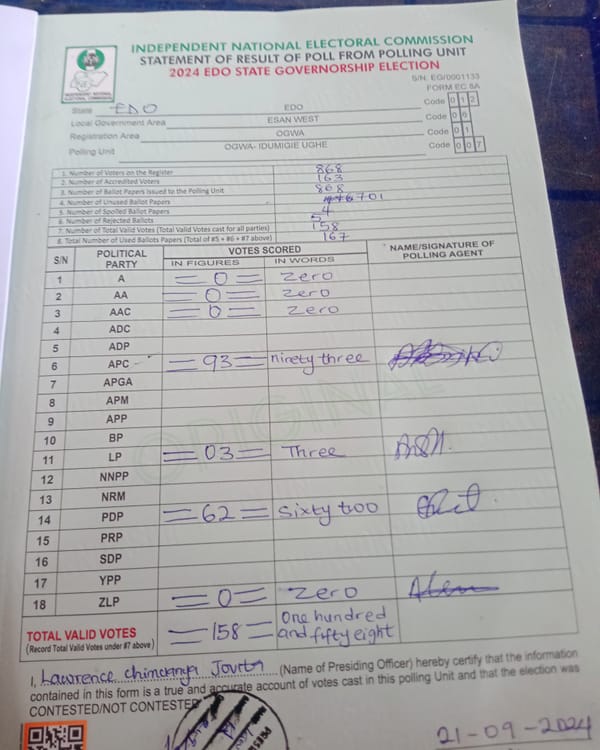 INDEPENDENT NATIONAL ELECTORAL COMMISSION
STATEMENT OF RESULT OF POLL FROM POLLING UNIT
2024 EDO STATE GOVERNORSHIP ELECTION
S/N. EG/0001133
FORM EC 8A
INDEPENDENT NATIONAL ELECTORAL COMMISSION
State EDO EDO Code 0 1 2
Local Government Area ESAN WEST Code 0 6
Registration Area OGWA Code 0 1
Polling Unit OGWA- IDUMIGIE UGHE Code 0 0 7
1. Number of Voters on the Register 868
2. Number of Accredited Voters 163
3. Number of Ballot Papers Issued to the Polling Unit 868
4. Number of Unused Ballot Papers 701
5. Number of Spoiled Ballot Papers 4
6. Number of Rejected Ballots 5
7. Number of Total Valid Votes (Total Valid Votes cast for all parties) 158
8. Total Number of Used Ballots Papers (Total of #5 + #6 + #7 above) 167
S/N POLITICAL PARTY VOTES SCORED NAME/SIGNATURE OF POLLING AGENT
IN FIGURES IN WORDS
1 A =0= Zero
2 AA =0= Zero
3 AAC =0= Zero
4 ADC
5 ADP
6 APC =93= ninety three
7 APGA
8 APM
9 APP
10 BP
11 LP =03= Three
12 NNPP
13 NRM
14 PDP =62= Sixty two
15 PRP
16 SDP
17 YPP
18 ZLP =0= Zero
ORIGINAL
TOTAL VALID VOTES =158= One hundred and fifty eight
(Record Total Valid Votes under #7 above)
I, Lawrence (Name of Presiding Officer) hereby certify that the information
contained in this form is a true and accurate account of votes cast in this polling Unit and that the election was
CONTESTED/NOT CONTESTED
21-09-2024